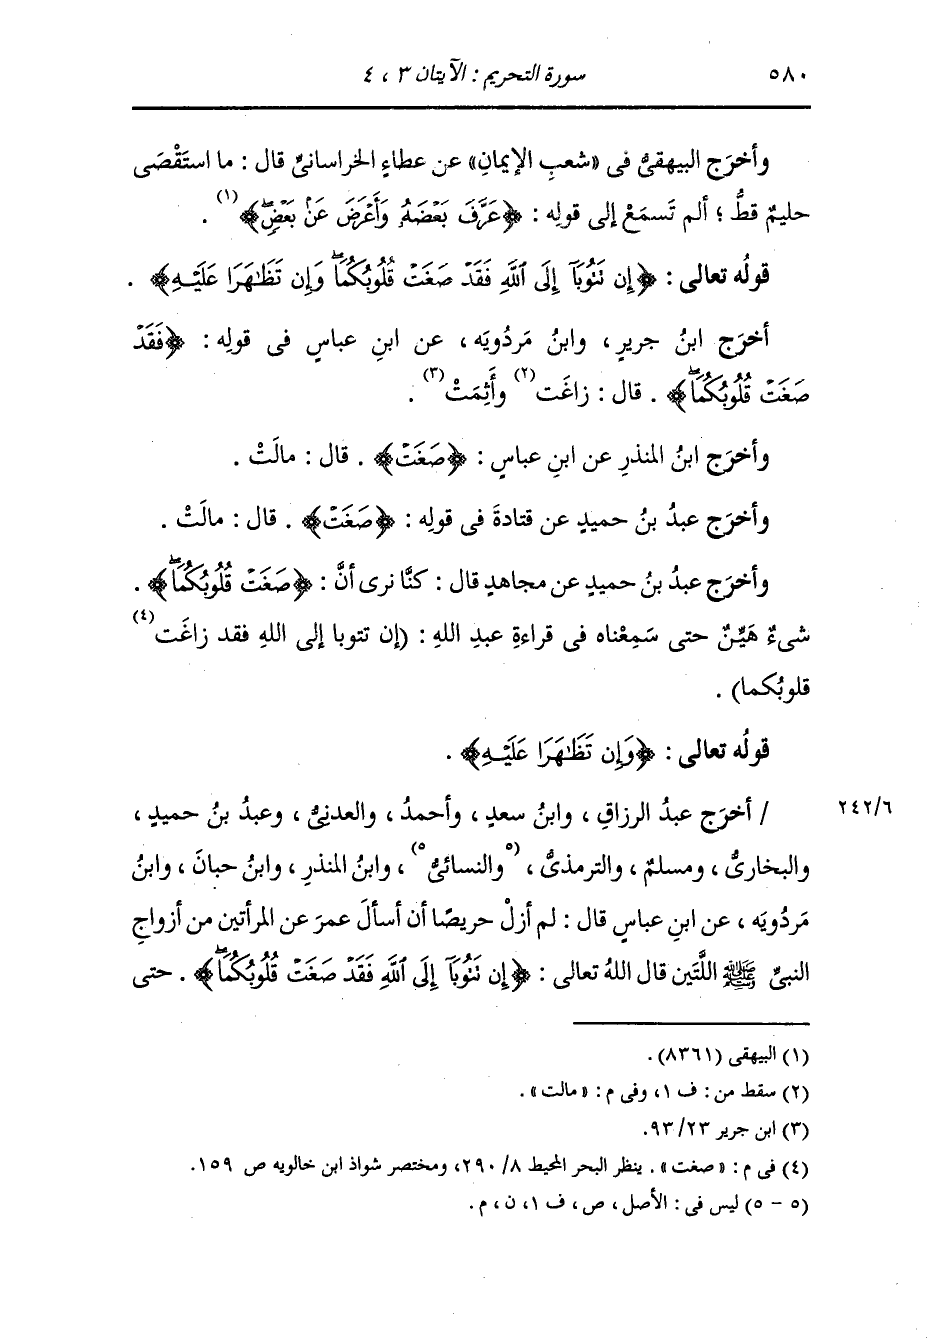 ٥٨٠
سورة التحريم : الآيتان ٣ ، ٤
وأخرَج البيهقىُّ فى «شعبِ الإيمانِ» عن عطاءٍ الخراسانىِّ قال : ما استَقْصَى
حليمٌ قطُّ ؛ ألم تَسمَعْ إلى قولِه : ﴿عَرَّفَ بَعْضَهُۥ وَأَعْرَضَ عَنۢ بَعْضٍۖ﴾(١) .
قولُه تعالى : ﴿إِن تَتُوبَآ إِلَى ٱللَّهِ فَقَدْ صَغَتْ قُلُوبُكُمَاۖ وَإِن تَظَٰهَرَا عَلَيْهِ﴾ .
أخرَج ابنُ جريرٍ ، وابنُ مَردُويَه ، عن ابنِ عباسٍ فى قولِه : ﴿فَقَدْ
صَغَتْ قُلُوبُكُمَاۖ﴾ . قال : زاغَت(٢) وأَثِمَتْ(٣) .
وأخرَج ابنُ المنذرِ عن ابنِ عباسٍ : ﴿صَغَتْ﴾ . قال : مالَتْ .
وأخرَج عبدُ بنُ حميدٍ عن قتادةَ فى قولِه : ﴿صَغَتْ﴾ . قال : مالَتْ .
وأخرَج عبدُ بنُ حميدٍ عن مجاهدٍ قال : كنَّا نرى أنَّ : ﴿صَغَتْ قُلُوبُكُمَاۖ﴾ .
شىءٌ هَيِّنٌ حتى سَمِعْناه فى قراءةِ عبدِ اللهِ : (إن تتوبا إلى اللهِ فقد زاغَت(٤)
قلوبُكما) .
قولُه تعالى : ﴿وَإِن تَظَٰهَرَا عَلَيْهِ﴾ .
/ أخرَج عبدُ الرزاقِ ، وابنُ سعدٍ ، وأحمدُ ، والعدنىُّ ، وعبدُ بنُ حميدٍ ، ٢٤٢/٦
والبخارىُّ ، ومسلمٌ ، والترمذىُّ ، (٥والنسائىُّ٥) ، وابنُ المنذرِ ، وابنُ حبانَ ، وابنُ
مَردُويَه ، عن ابنِ عباسٍ قال : لم أزلْ حريصًا أن أسألَ عمرَ عن المرأتين من أزواجِ
النبىِّ ﷺ اللَّتَين قال اللهُ تعالى : ﴿إِن تَتُوبَآ إِلَى ٱللَّهِ فَقَدْ صَغَتْ قُلُوبُكُمَاۖ﴾ . حتى
(١) البيهقى (٨٣٦١) .
(٢) سقط من : ف ١، وفى م : «مالت» .
(٣) ابن جرير ٩٣/٢٣.
(٤) فى م : «صغت» . ينظر البحر المحيط ٨/ ٢٩٠، ومختصر شواذ ابن خالويه ص ١٥٩.
(٥ - ٥) ليس فى : الأصل ، ص ، ف ١، ن ، م .